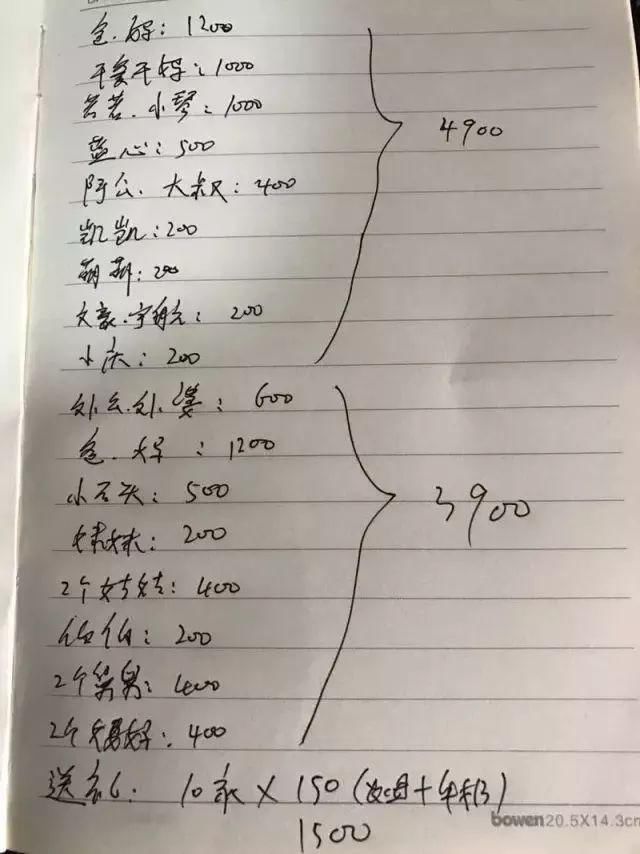 爸.妈：1200
干爹干妈：1000
芸芸.小琴：1000
蓝心：500
阿公.大叔：400
凯凯：200
萌萌：200
文豪.宇航：200
小庆：200
4900
外公.外婆：600
爸.妈：1200
小石头：500
妹妹：200
2个姑姑：400
伯伯：200
2个舅舅：400
2个舅妈：400
3900
送礼：10家×150(烟+年糕)
1500
bowen 20.5X14.3cm